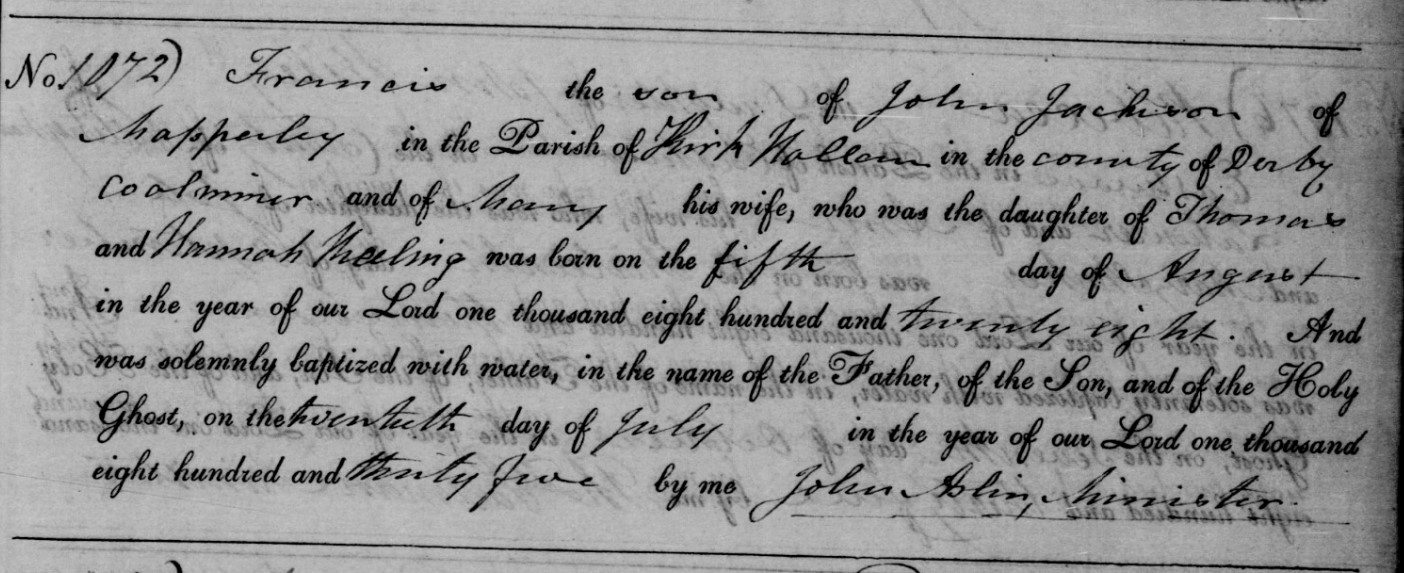 No. 1072) Francis the son of John Jackson of
Mapperley in the Parish of Kirk Hallam in the county of Derby
Coalminer and of Mary his wife, who was the daughter of Thomas
and Hannah Keeling was born on the fifth day of August
in the year of our Lord one thousand eight hundred and twenty eight. And
was solemnly baptized with water, in the name of the Father, of the Son, and of the Holy
Ghost, on the twentieth day of July in the year of our Lord one thousand
eight hundred and thirty five by me John Aslin, Minister